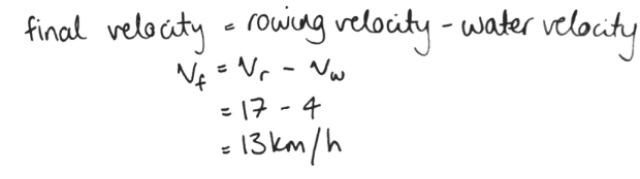 final velocity = rowing velocity - water velocity
Vf = Vr - Vw
= 17 - 4
= 13km/h